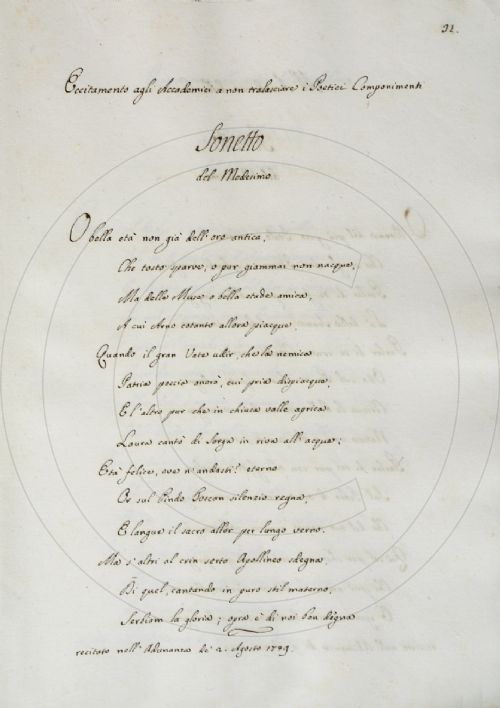 31.
Eccitamento agli Accademici a non tralasciare i Poetici Componimenti
Sonetto
del Medesimo
O bella età non già dell'oro antica,
Che tosto sparve, o pur giammai non nacque,
Ma delle Muse o bella etade amica,
A cui Arno cotanto allora piacque
Quando il gran Vate udir, che la nemica
Patria poscia onorò, cui pria dispiacque,
E l'altro pur che in chiusa valle aprica
Laura cantò di Sorga in riva all'acque;
Età felice, ove n'andasti? eterno
Or sul Pindo Toscan silenzio regna,
E langue il sacro allor per lungo verno.
Ma s'altri al crin serto Apollineo sdegna,
Di quel, cantando in puro stil materno,
Serbiam la gloria; opra è di noi ben degna
recitato nell'Adunanza de' 2. Agosto 1789.